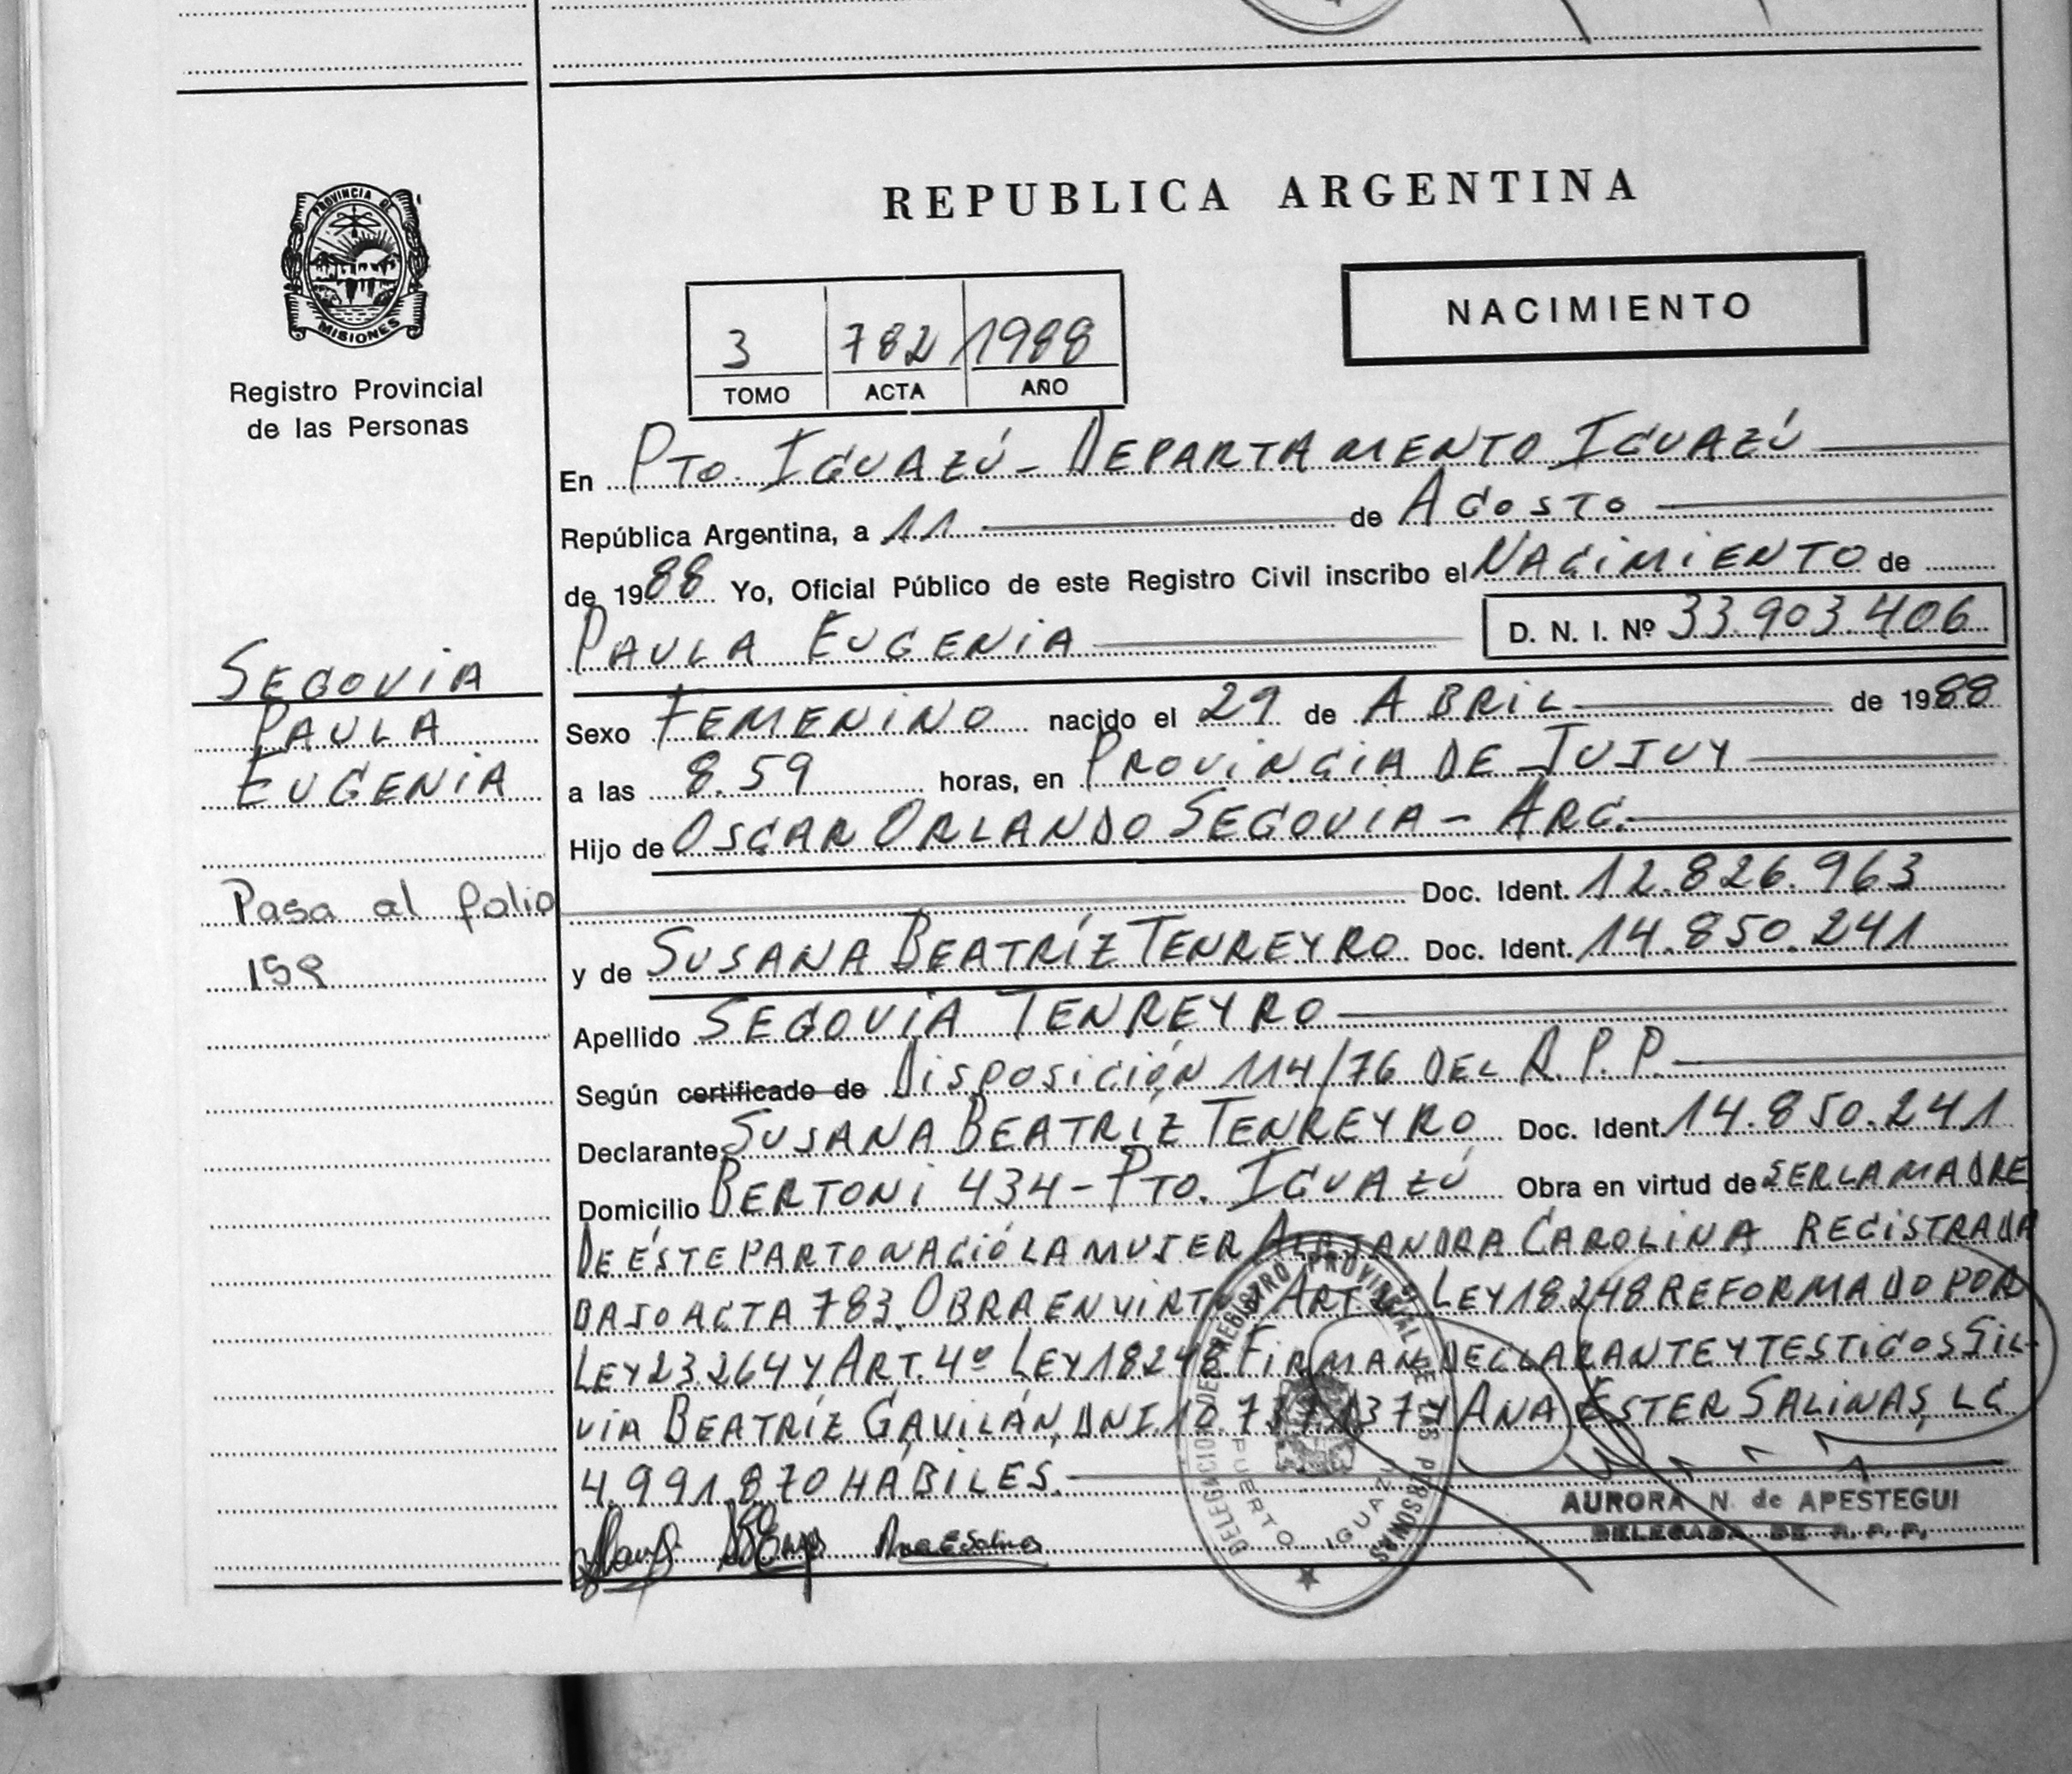 PROVINCIA DE
MISIONES
Registro Provincial
de las Personas
REPUBLICA ARGENTINA
NACIMIENTO
3 782 1988
TOMO ACTA AÑO
En Pto. Iguazú - Departamento Iguazú
República Argentina, a 11 de Agosto
de 1988 Yo, Oficial Público de este Registro Civil inscribo el Nacimiento de
Paula Eugenia D. N. I. Nº 33.903.406
Segovia
Paula
Eugenia
Sexo Femenino nacido el 29 de Abril de 1988
a las 8.59 horas, en Provincia de Jujuy
Hijo de Oscar Orlando Segovia - Arg.
Doc. Ident. 12.826.963
Pasa al folio
159
y de Susana Beatríz Tenreyro Doc. Ident. 14.850.241
Apellido Segovia Tenreyro
Según certificado de Disposición 114/76 del R.P.P.
Declarante Susana Beatríz Tenreyro Doc. Ident. 14.850.241
Domicilio Bertoni 434 - Pto. Iguazú Obra en virtud de ser la madre
De éste parto nació la mujer Alejandra Carolina registrada
bajo acta 783. Obra en virtud Art. Ley 18.248 reformado por
Ley 23.264 y Art. 4º Ley 18248. Firman declarante y testigos Sil-
via Beatríz Gavilán, DNI 10.737.137 y Ana Ester Salinas, LC
4.991.870 hábiles.
DELEGACION DEL REGISTRO PROVINCIAL DE LAS PERSONAS
PUERTO IGUAZU
AURORA N. de APESTEGUI
DELEGADA DE R. P. P.